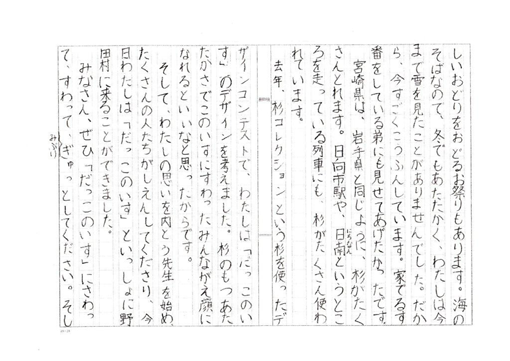 しいおどりをおどるお祭りもあります。海の
そばなので、冬でもあたたかく、わたしは今
まで雪を見たことがありませんでした。だか
ら、今すごくこうふんしています。家でるす
番をしている弟にも見せてあげたかったです。
宮崎県は、岩手県と同じように、杉がたく
さんとれます。日向市駅や、日南というとこ
ろを走っている列車にも、杉がたくさん使わ
れています。
去年、杉コレクションという杉を使ったデ
ザインコンテストで、わたしは「だっこのい
す」のデザインを考えました。杉のもつあた
たかさでこのいすにすわったみんながえ顔に
なれるといいなと思ったからです。
そして、わたしの思いを内とう先生を始め、
たくさんの人たちがしえんしてくださり、今
日わたしは「だっこのいす」といっしょに野
田村に来ることができました。
みなさん、ぜひ「だっこのいす」にさわっ
て、すわって、ぎゅっとしてください。そし